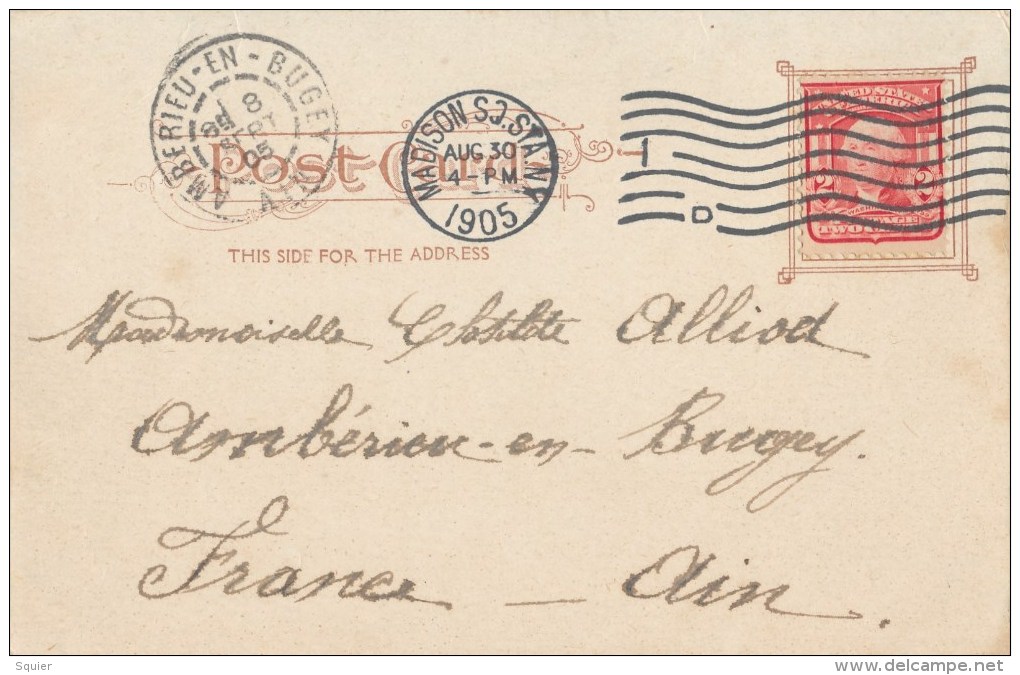 AMBERIEU-EN-BUGEY
AIN
8
05
Post Card
MADISON SQ. STA. N.Y.
AUG. 30
4-PM
1905
1
D
UNITED STATES
2 2
TWO CENTS
THIS SIDE FOR THE ADDRESS
Mademoiselle Clotilde Alliod
Ambérieu-en-Bugey.
France — Ain.
Squier
delcampe.net